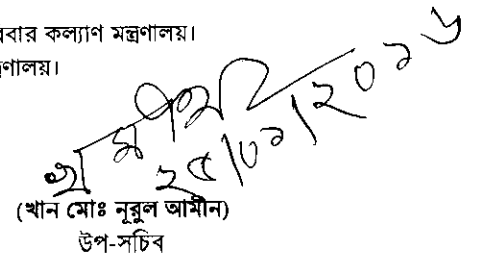 রবার কল্যাণ মন্ত্রণালয়।
ত্রণালয়।
২৫/০১/২০১৬
(খান মোঃ নূরুল আমীন)
উপ-সচিব